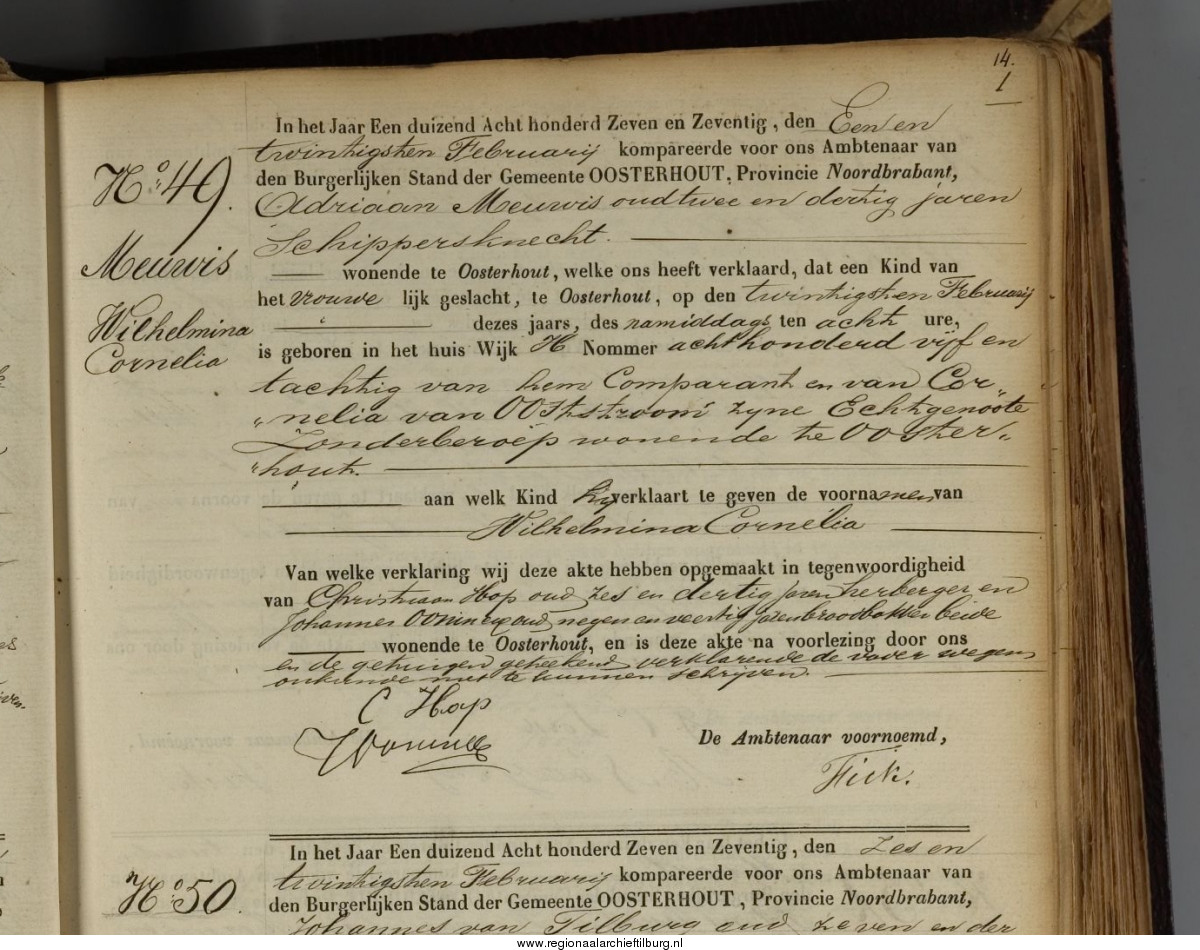 14.
1
In het Jaar Een duizend Acht honderd Zeven en Zeventig, den Een en
twintigsten Februarij kompareerde voor ons Ambtenaar van
den Burgerlijken Stand der Gemeente OOSTERHOUT, Provincie Noordbrabant,
No. 49.
Adriaan Meuwis oud twee en dertig jaren
Schippersknecht.
Meuwis
wonende te Oosterhout, welke ons heeft verklaard, dat een Kind van
het vrouwe lijk geslacht, te Oosterhout, op den twintigsten Februarij
Wilhelmina
Cornelia
dezes jaars, des namiddags ten acht ure,
is geboren in het huis Wijk H Nommer achthonderd vijf en
tachtig van hem Comparant en van Cor„
„nelia van Ooststroom zyne Echtgenoote
Zonderberoep wonende te Ooster„
„hout.
aan welk Kind hij verklaart te geven de voornamen van
Wilhelmina Cornelia
Van welke verklaring wij deze akte hebben opgemaakt in tegenwoordigheid
van Christiaan Hop oud zes en dertig jaren herberger en
Johannes oud negen en veertig jaren broodbakker beide
wonende te Oosterhout, en is deze akte na voorlezing door ons
en de getuigen geteekend verklarende de vader wegens
onkunde niet te kunnen schrijven.
C Hop
De Ambtenaar voornoemd,
No. 50.
In het Jaar Een duizend Acht honderd Zeven en Zeventig, den zes en
twintigsten Februarij kompareerde voor ons Ambtenaar van
den Burgerlijken Stand der Gemeente OOSTERHOUT, Provincie Noordbrabant,
Johannes van Tilburg oud zeven en der
www.regionaalarchieftilburg.nl